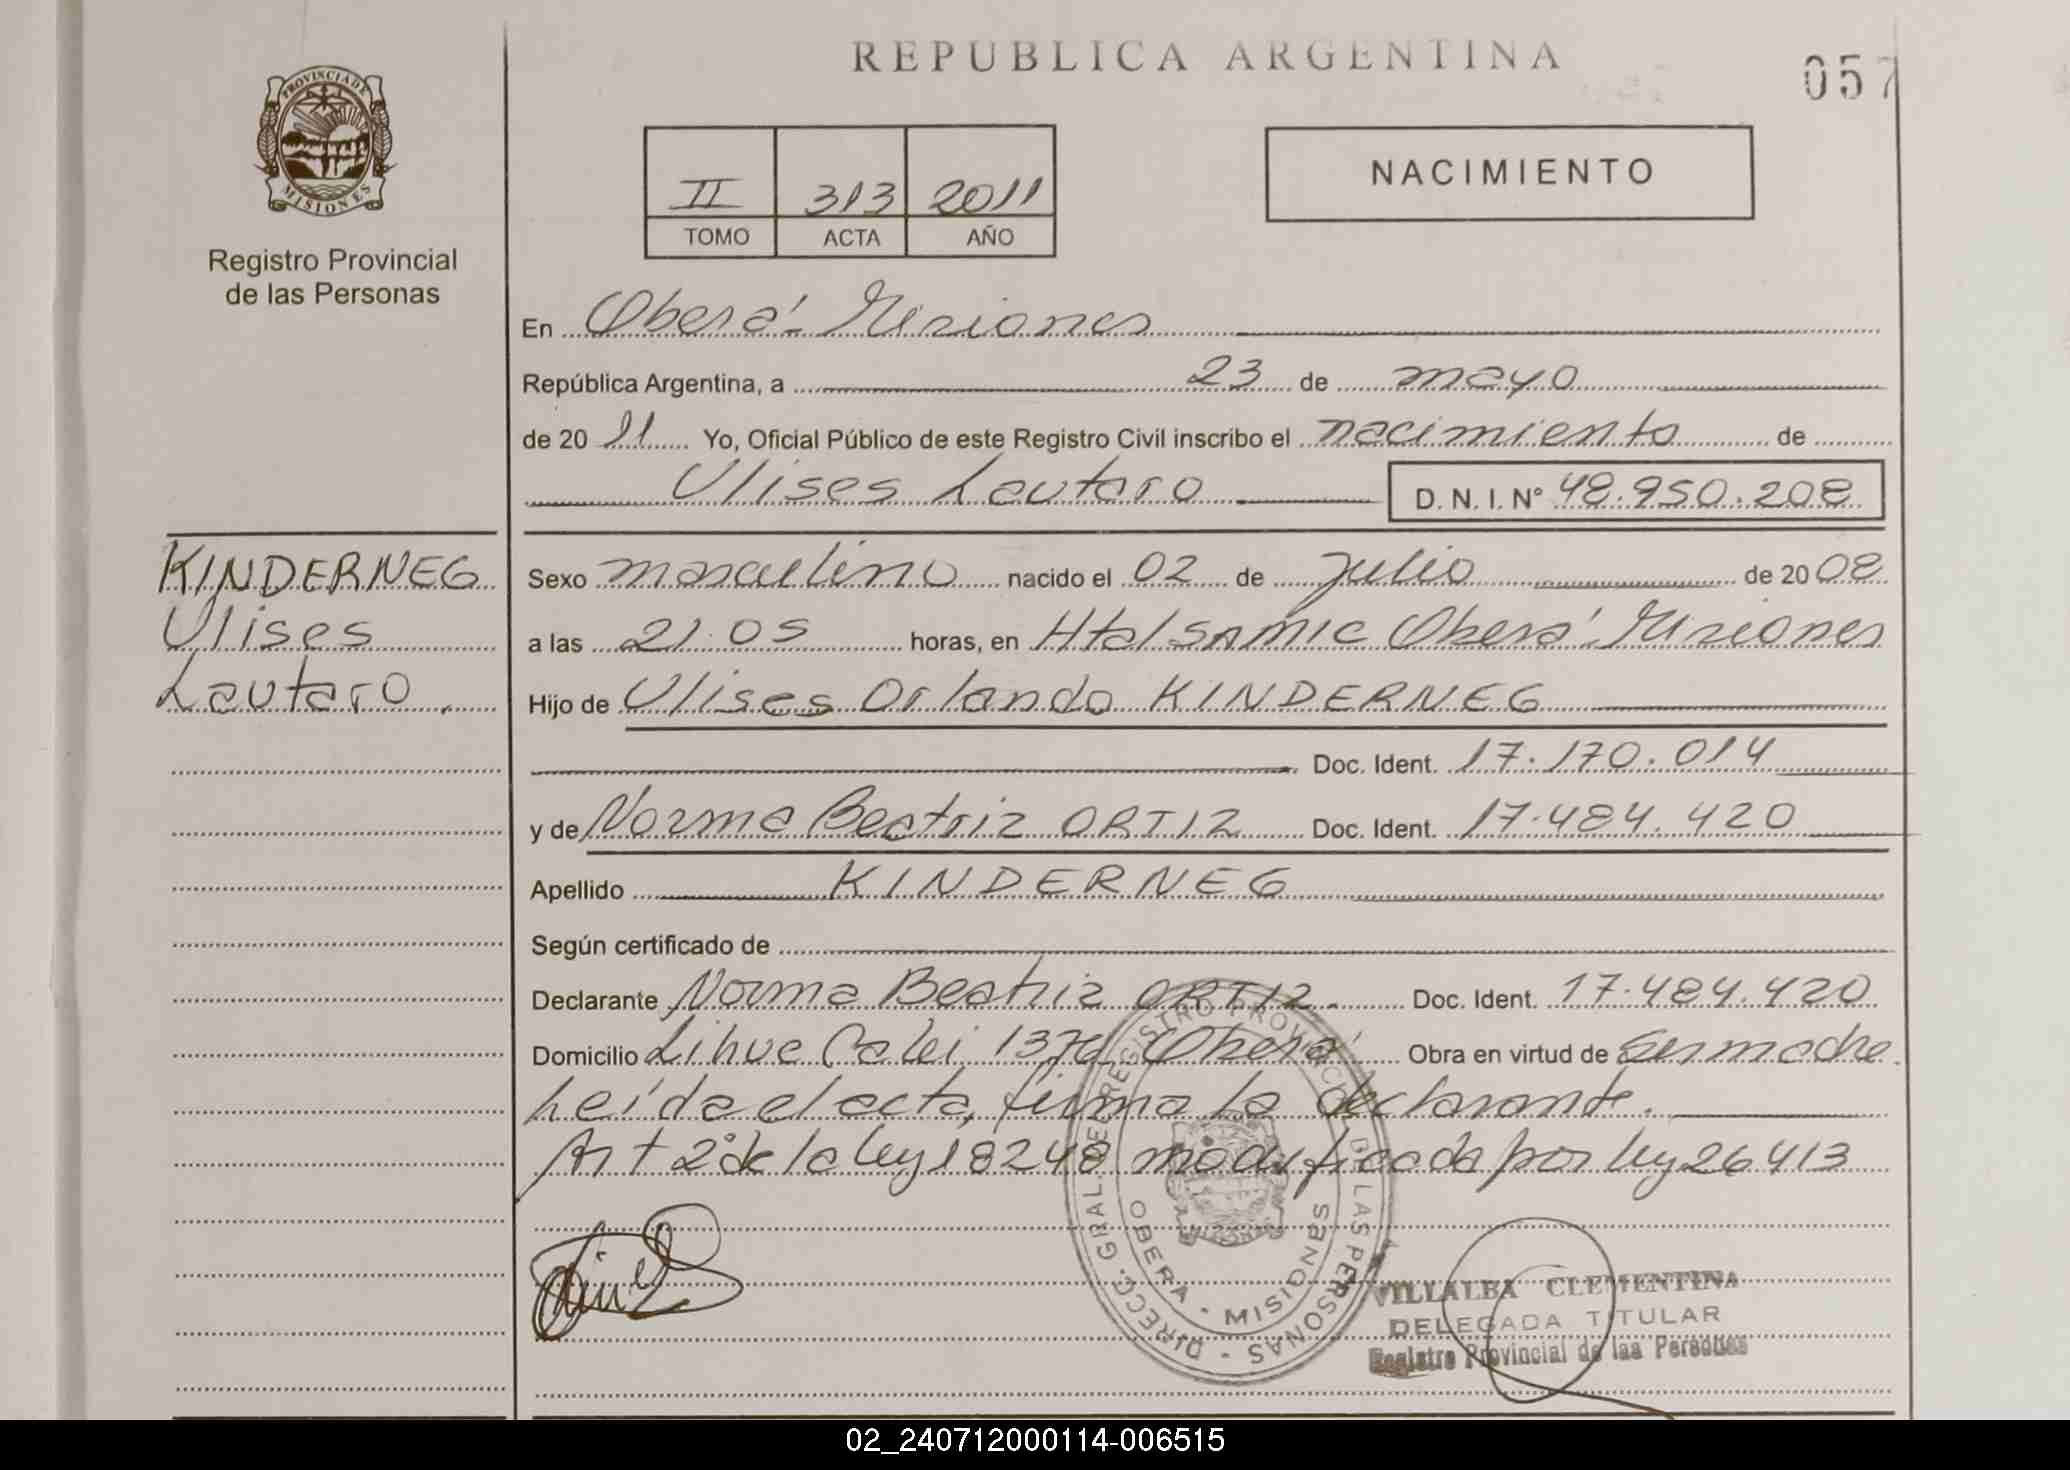 REPUBLICA ARGENTINA
057
PROVINCIA DE
MISIONES
Registro Provincial
de las Personas
II 313 2011
TOMO ACTA AÑO
NACIMIENTO
En Oberá - Misiones
República Argentina, a 23 de mayo
de 20 11 Yo, Oficial Público de este Registro Civil inscribo el nacimiento de
Ulises Lautaro D. N. I. N° 48.950.208
KINDERNEG
Ulises
Lautaro.
Sexo masculino nacido el 02 de julio de 20 08
a las 21:05 horas, en Htal SAMIC Oberá - Misiones
Hijo de Ulises Orlando KINDERNEG
Doc. Ident. 17.170.014
y de Norma Beatriz ORTIZ Doc. Ident. 17.484.420
Apellido KINDERNEG
Según certificado de
Declarante Norma Beatriz ORTIZ. Doc. Ident. 17.484.420
Domicilio Oberá Obra en virtud de Ser madre.
Leída el acta, firma la declarante.
Art 2° de la ley 18248 modificada por ley 26413
DIRECC. GRAL. DEL REGISTRO PROVINCIAL DE LAS PERSONAS -
OBERA - MISIONES
VILLALBA CLEMENTINA
DELEGADA TITULAR
Registro Provincial de las Personas
02_240712000114-006515